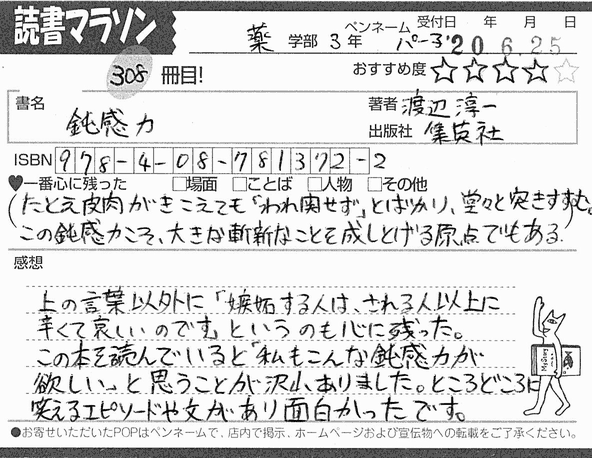 読書マラソン
薬 学部 3 年 ペンネーム パー子 受付日 年 月 日
20 6.25
308 冊目! おすすめ度 ☆☆☆☆☆
書名 鈍感力
著者 渡辺淳一
出版社 集英社
ISBN 978-4-08-781372-2
♥一番心に残った □場面 □ことば □人物 □その他
(たとえ皮肉がきこえても「われ関せず」とばかり、堂々と突きすすむ。
この鈍感力こそ、大きな斬新なことを成しとげる原点でもある)
感想
上の言葉以外に「嫉妬する人は、される人以上に
辛くて哀しいのです」というのも心に残った。
この本を読んでいると「私もこんな鈍感力が
欲しい」と思うことが沢山ありました。ところどころに
笑えるエピソードや文があり面白かったです。
●お寄せいただいたPOPはペンネームで、店内で掲示、ホームページおよび宣伝物への転載をご了承ください。